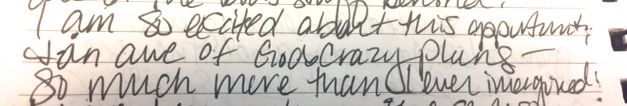 I am so excited about this opportunity
& in awe of God's crazy plans -
So much more than I ever imagined!